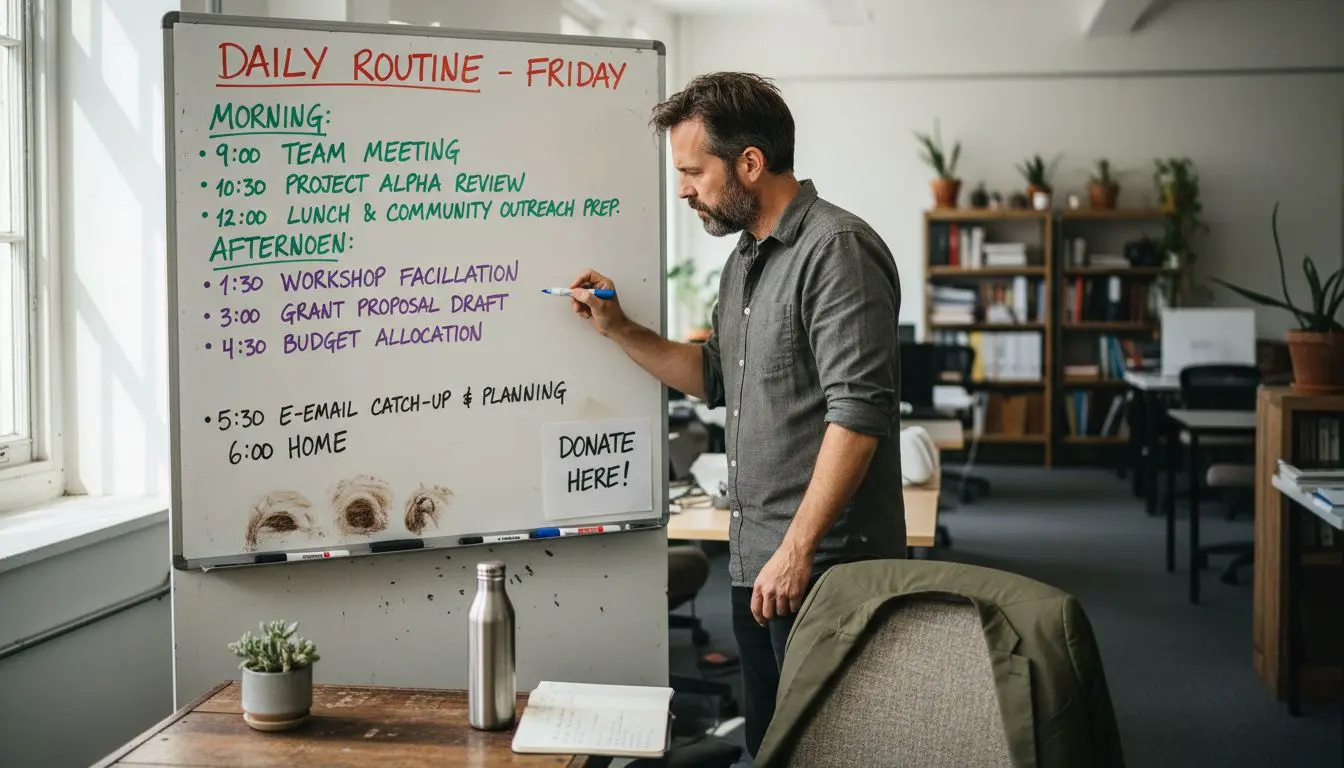 DAILY ROUTINE - FRIDAY
MORNING:
• 9:00 TEAM MEETING
• 10:30 PROJECT ALPHA REVIEW
• 12:00 LUNCH & COMMUNITY OUTREACH PREP.
AFTERNOEN:
• 1:30 WORKSHOP FACILLATION
• 3:00 GRANT PROPOSAL DRAFT
• 4:30 BUDGET ALLOCATION
• 5:30 E-EMAIL CATCH-UP & PLANNING
6:00 HOME
DONATE
HERE!